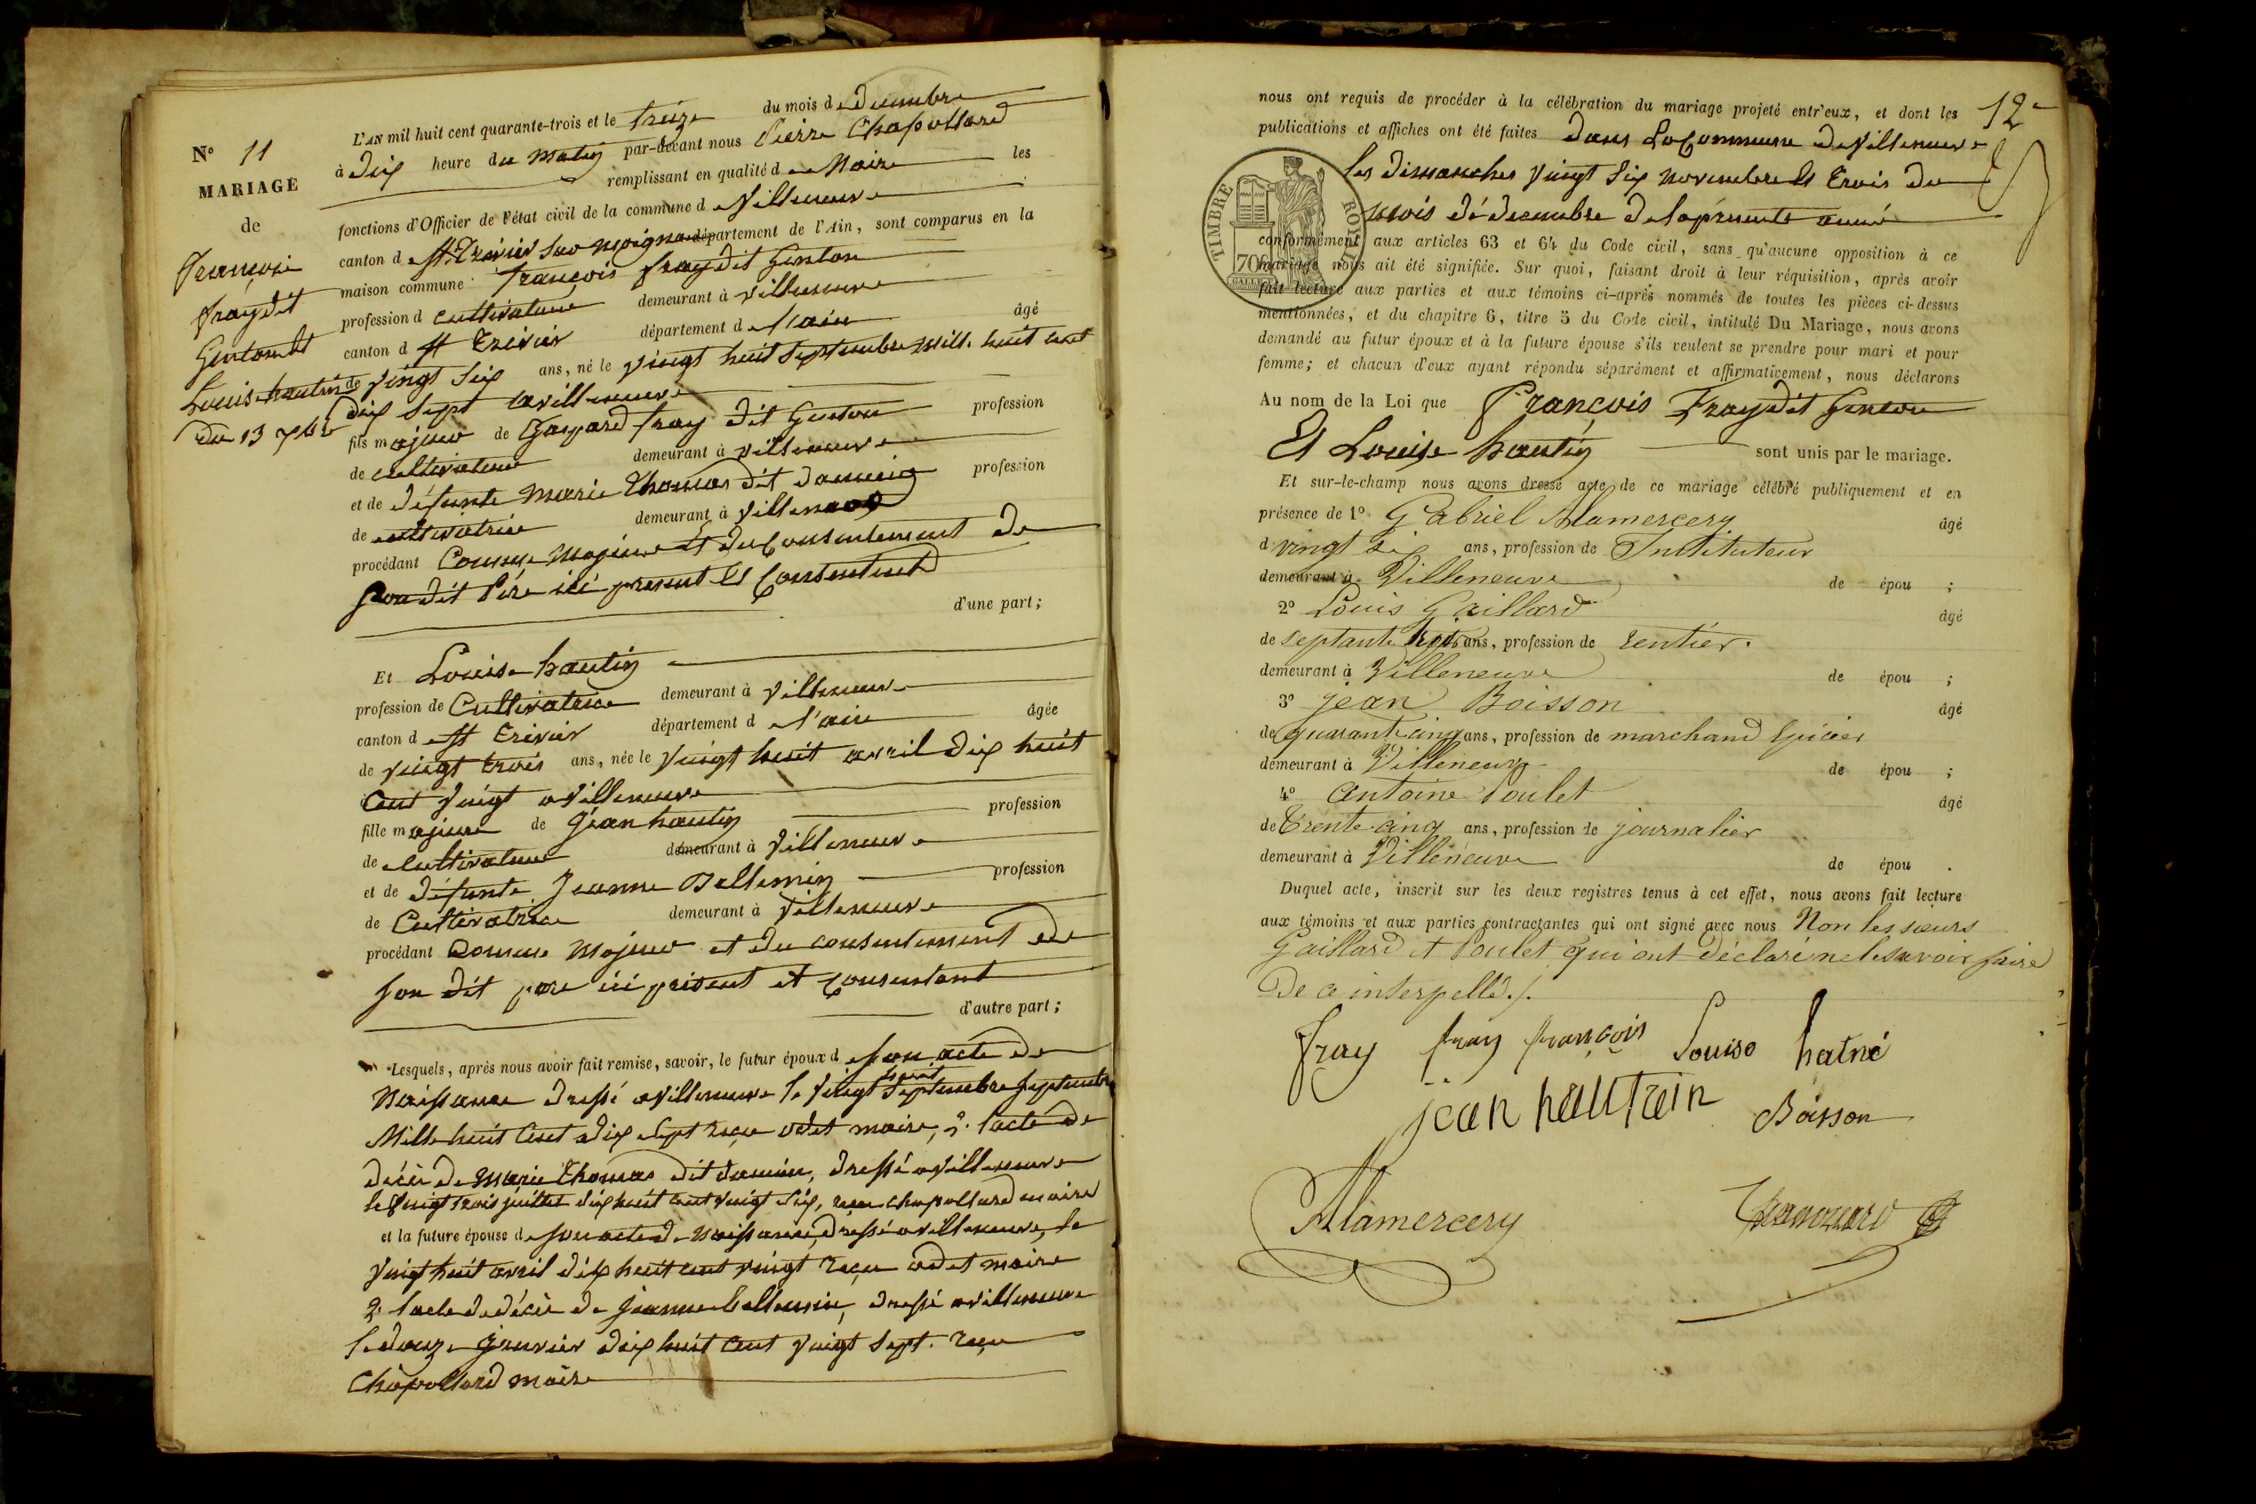 N° 11
MARIAGE
de
François
fray dit
Genton et
Louise hautin
du 13 xbre
L'AN mil huit cent quarante-trois et le treize du mois de decembre
à dix heure du matin par-devant nous Pierre Chapollard
remplissant en qualité de Maire les
fonctions d'Officier de l'état civil de la commune de villeneuve
canton de St Trivier sur moignans département de l'Ain, sont comparus en la
maison commune François fray dit Genton
profession de cultivateur demeurant à villeneuve
canton de St Trivier département de l'ain âgé
de vingt six ans, né le vingt huit septembre mille huit cent
dix sept a villeneuve
fils majeur de Gaspard fray dit Genton profession
de cultivateur demeurant à villeneuve
et de défunte Marie Thomas dit damien profession
de cultivatrice demeurant à villeneuve
procédant Comme Majeur et du Consentement de
son dit Père ici present et Consentent
d'une part;
Et Louise hautin
profession de Cultivatrice demeurant à villeneuve
canton de St Trivier département de l'ain âgée
de vingt trois ans, née le vingt huit avril dix huit
Cent vingt a villeneuve
fille majeure de Jean hautin profession
de cultivateur demeurant à villeneuve
et de défunte Jeanne Bellemin profession
de Cultivatrice demeurant à villeneuve
procédant comme Majeur et du consentement de
son dit père ici présent et consentant
d'autre part;
Lesquels, après nous avoir fait remise, savoir, le futur époux de son acte de
huit
Naissance dressé a villeneuve le vingt septembre septembre
Mille huit Cent dix sept reçu odet maire, 2° l'acte de
décès de Marie Thomas dit damien, dressé a villeneuve
le vingt trois juillet dix huit cent vingt six, reçu chapollard maire
et la future épouse de son acte de naissance, dressé a villeneuve, le
vingt huit avril dix huit cent vingt reçu odet maire
2° l'acte de décès de Jeanne bellemin, dressé a villeneuve
le douze janvier dix huit cent vingt sept. reçu
Chapollard maire
12
nous ont requis de procéder à la célébration du mariage projeté entr'eux, et dont les
publications et affiches ont été faites dans la Commune de villeneuve
les dimanches vingt six novembre et trois du
mois de decembre de la présente année
TIMBRE ROYAL
70c
conformément aux articles 63 et 64 du Code civil, sans qu'aucune opposition à ce
mariage nous ait été signifiée. Sur quoi, faisant droit à leur réquisition, après avoir
fait lecture aux parties et aux témoins ci-après nommés de toutes les pièces ci-dessus
mentionnées, et du chapitre 6, titre 5 du Code civil, intitulé Du Mariage, nous avons
demandé au futur époux et à la future épouse s'ils veulent se prendre pour mari et pour
femme; et chacun d'eux ayant répondu séparément et affirmativement, nous déclarons
Au nom de la Loi que François Fray dit Genton
Et Louise hautin sont unis par le mariage.
Et sur-le-champ nous avons dressé acte de ce mariage célébré publiquement et en
présence de 1° Gabriel Alamercery âgé
d vingt six ans, profession de Instituteur
demeurant à Villeneuve de épou ;
2° Louis Gaillard âgé
de septante ans, profession de rentier.
demeurant à Villeneuve de épou ;
3° Jean Boisson âgé
de quarante cinq ans, profession de marchand Epicier
demeurant à Villeneuve de épou ;
4° Antoine Poulet âgé
de Trente cinq ans, profession de journalier
demeurant à Villeneuve de épou .
Duquel acte, inscrit sur les deux registres tenus à cet effet, nous avons fait lecture
aux témoins et aux parties contractantes qui ont signé avec nous Non les sieurs
Gaillard et Poulet qui ont déclaré ne le savoir faire
De ce interpellé./.
fray fray françois Louise hatné
jean hautrein Boisson
Alamercery